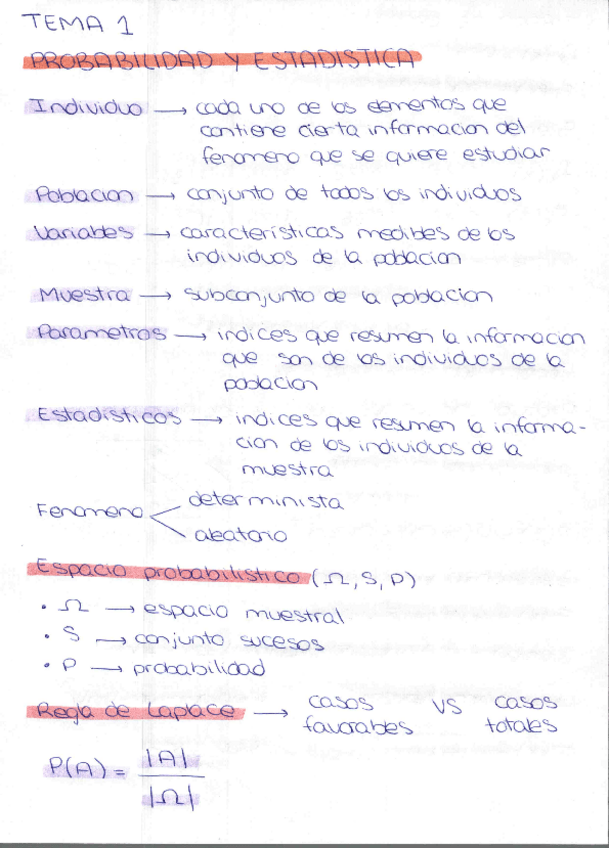 TEMA 1
PROBABILIDAD Y ESTADISTICA
Individuo → cada uno de los elementos que
contiene cierta informacion del
fenomeno que se quiere estudiar
Poblacion → conjunto de todos los individuos
Variables → características medibles de los
individuos de la poblacion
Muestra → subconjunto de la poblacion
Parametros → indices que resumen la informacion
que son de los individuos de la
poblacion
Estadisticos → indices que resumen la informa-
cion de los individuos de la
muestra
Fenomeno
determinista
aleatorio
Espacio probabilistico (Ω, S, P)
• Ω → espacio muestral
• S → conjunto sucesos
• P → probabilidad
Regla de Laplace → casos favorables VS casos totales
P(A) = |A| / |Ω|